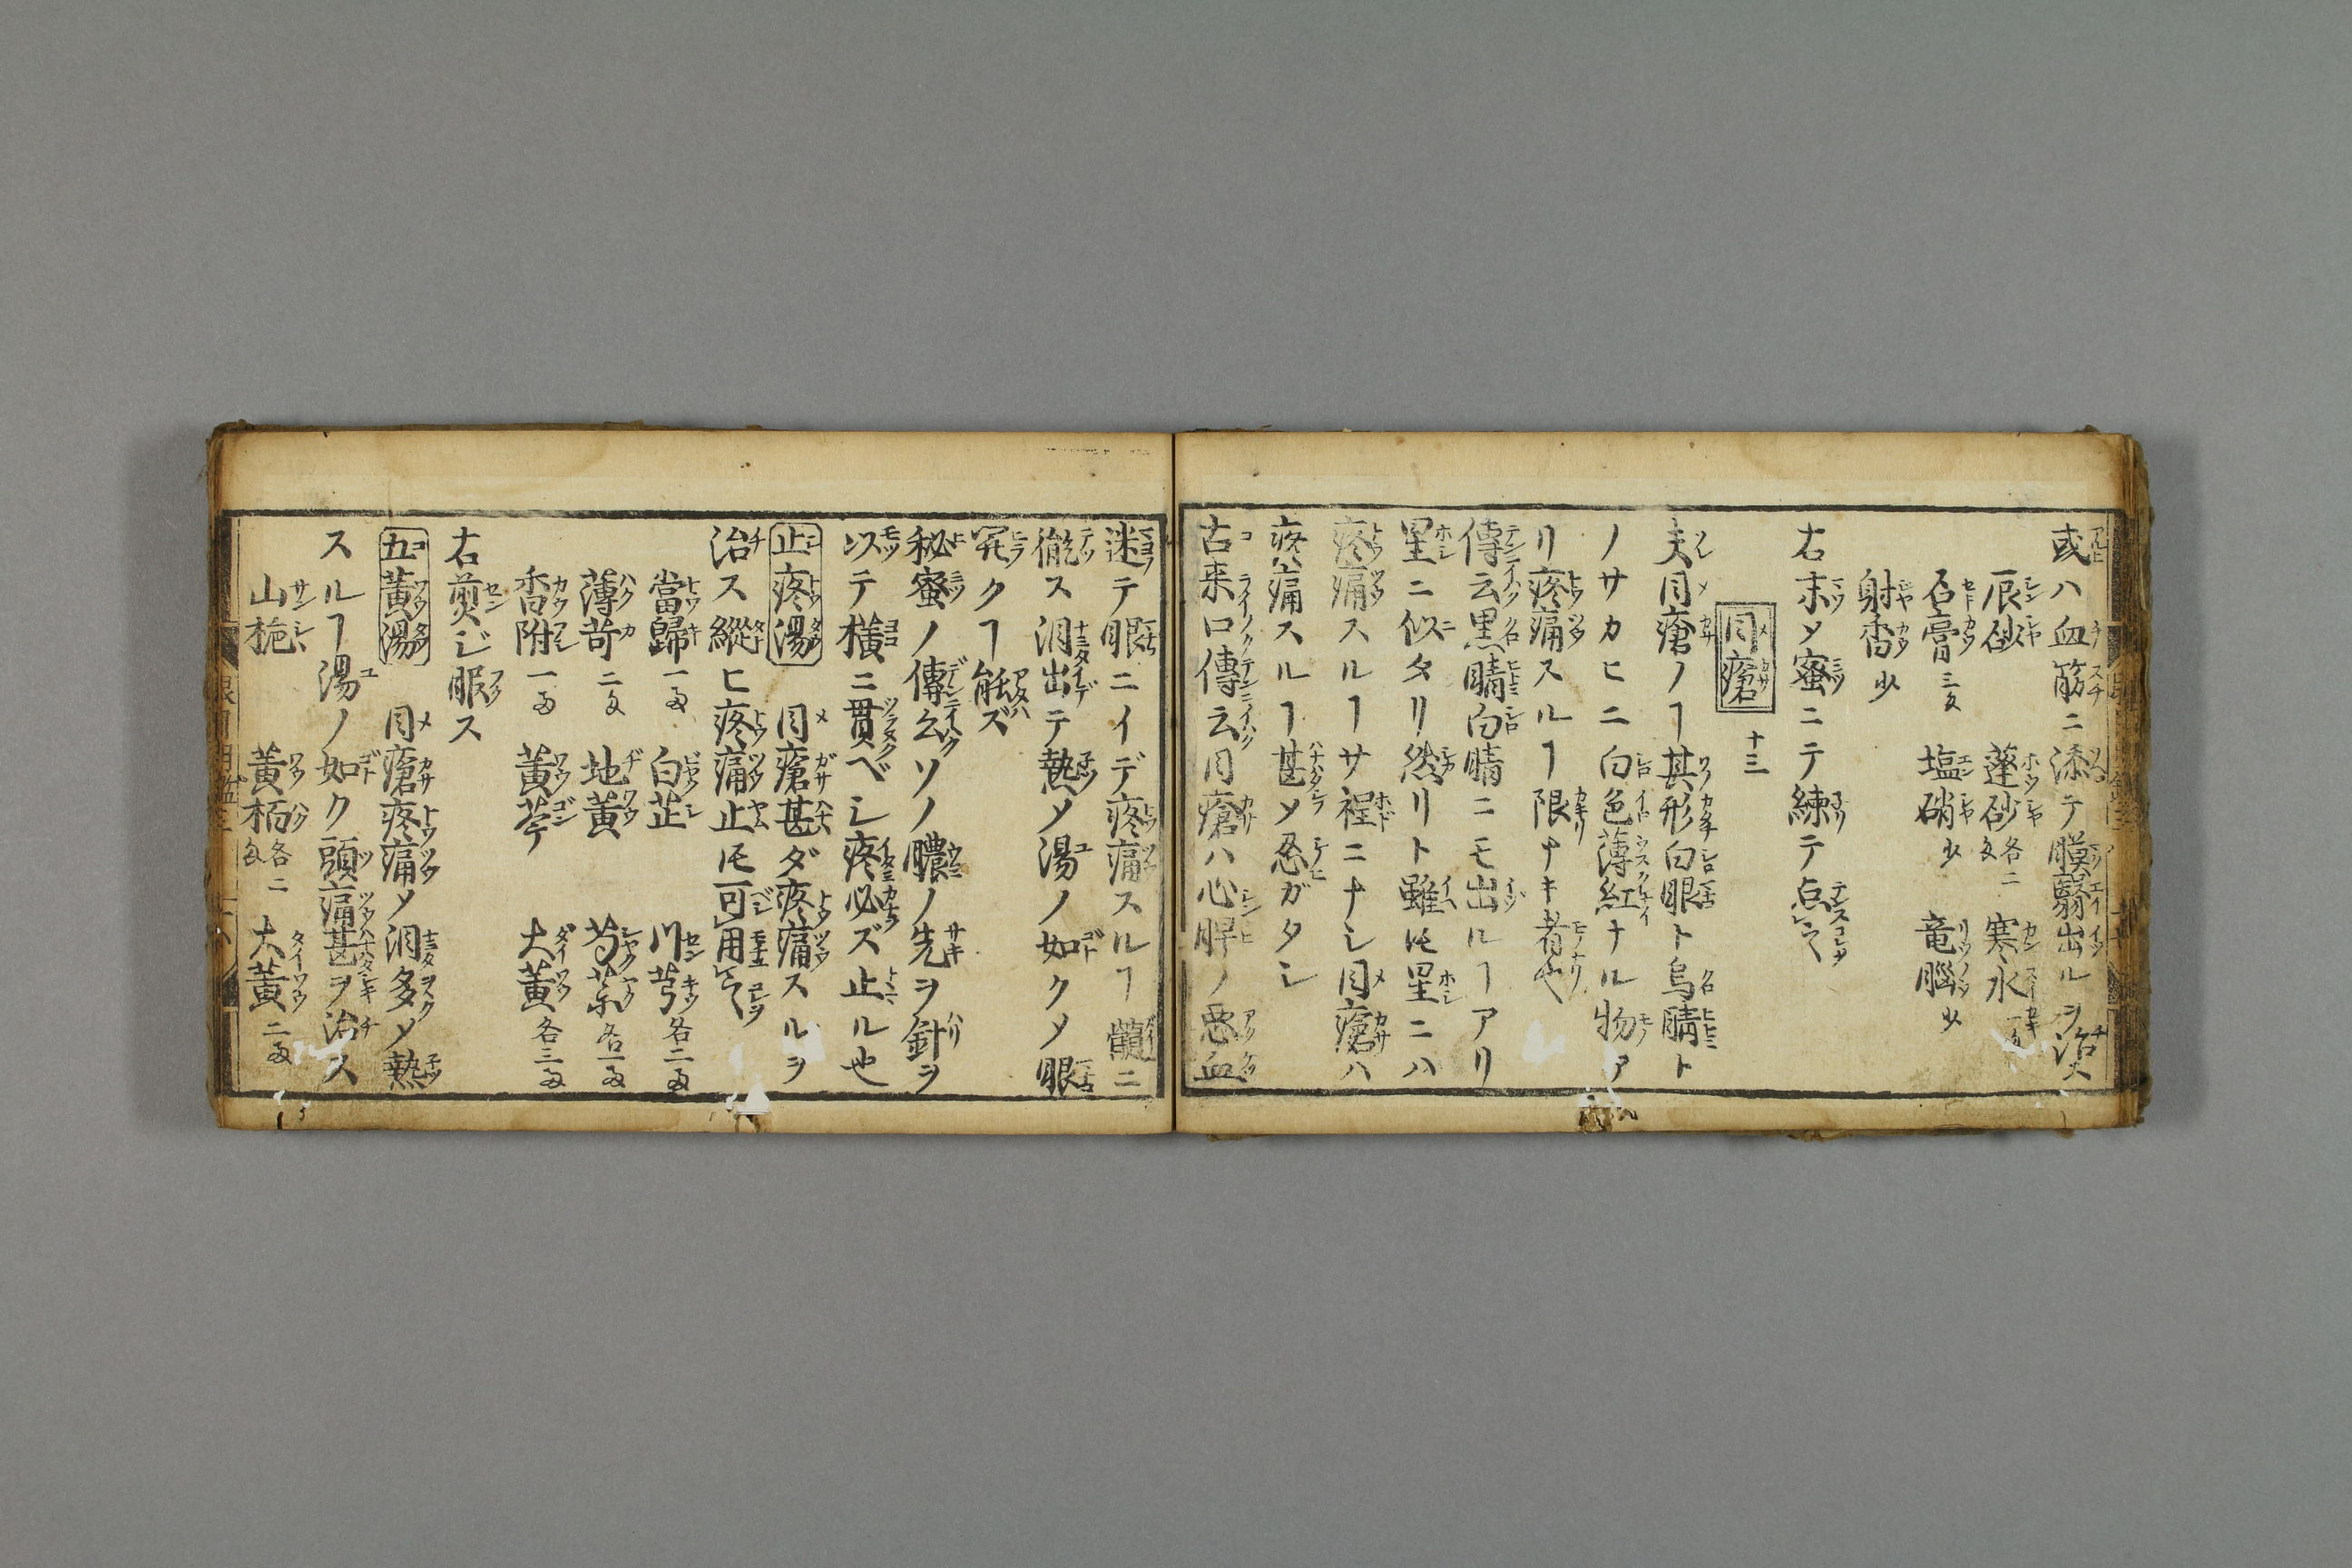 或ハ血筋ニ添テ膜翳出ルヲ治ス
辰砂 蓬砂各二匁 寒水一匁
石膏三匁 塩硝少 竜腦少
射香少
右末〆蜜ニテ練テ点之
目瘡 十三
夫目瘡ノヿ其形白眼ト烏睛ト
ノサカヒニ白色薄紅ナル物ア
リ疼痛スルヿ限ナキ者也
傳云黒睛白睛ニモ出ルヿアリ
星ニ似タリ然リト雖𪜈星ニハ
疼痛スルヿサ程ニナシ目瘡ハ
疼痛スルヿ甚〆忍ガタシ
古来口傳云目瘡ハ心脾ノ悪血
迷テ眼ニイデ疼痛スルヿ髓ニ
徹ス泪出テ熱〆湯ノ如ク〆眼
開クヿ能ズ
秘蜜ノ傳云ソノ膿ノ先ヲ針ヲ
以テ横ニ貫ベシ疼必ズ止ル也
止疼湯 目瘡甚ダ疼痛スルヲ
治ス縱ヒ疼痛止𪜈可用之
當歸一匁 白芷 川芎各二匁
薄苛二匁 地黄 芍薬各一匁
香附一匁 黄芩 大黄各三匁
右煎ジ服ス
五黄湯 目瘡疼痛〆泪多〆熱
スルヿ湯ノ如ク頭痛甚ヲ治ス
山梔 黄栢各二匁 大黄二匁